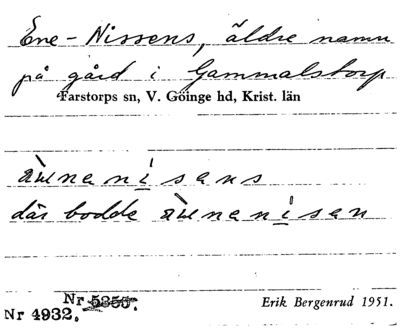 Ene-Nissens, äldre namn
på gård i Gammalstorp
Farstorps sn, V. Göinge hd, Krist. län
där bodde
Nr 5355.
Nr 4932.
Erik Bergenrud 1951.